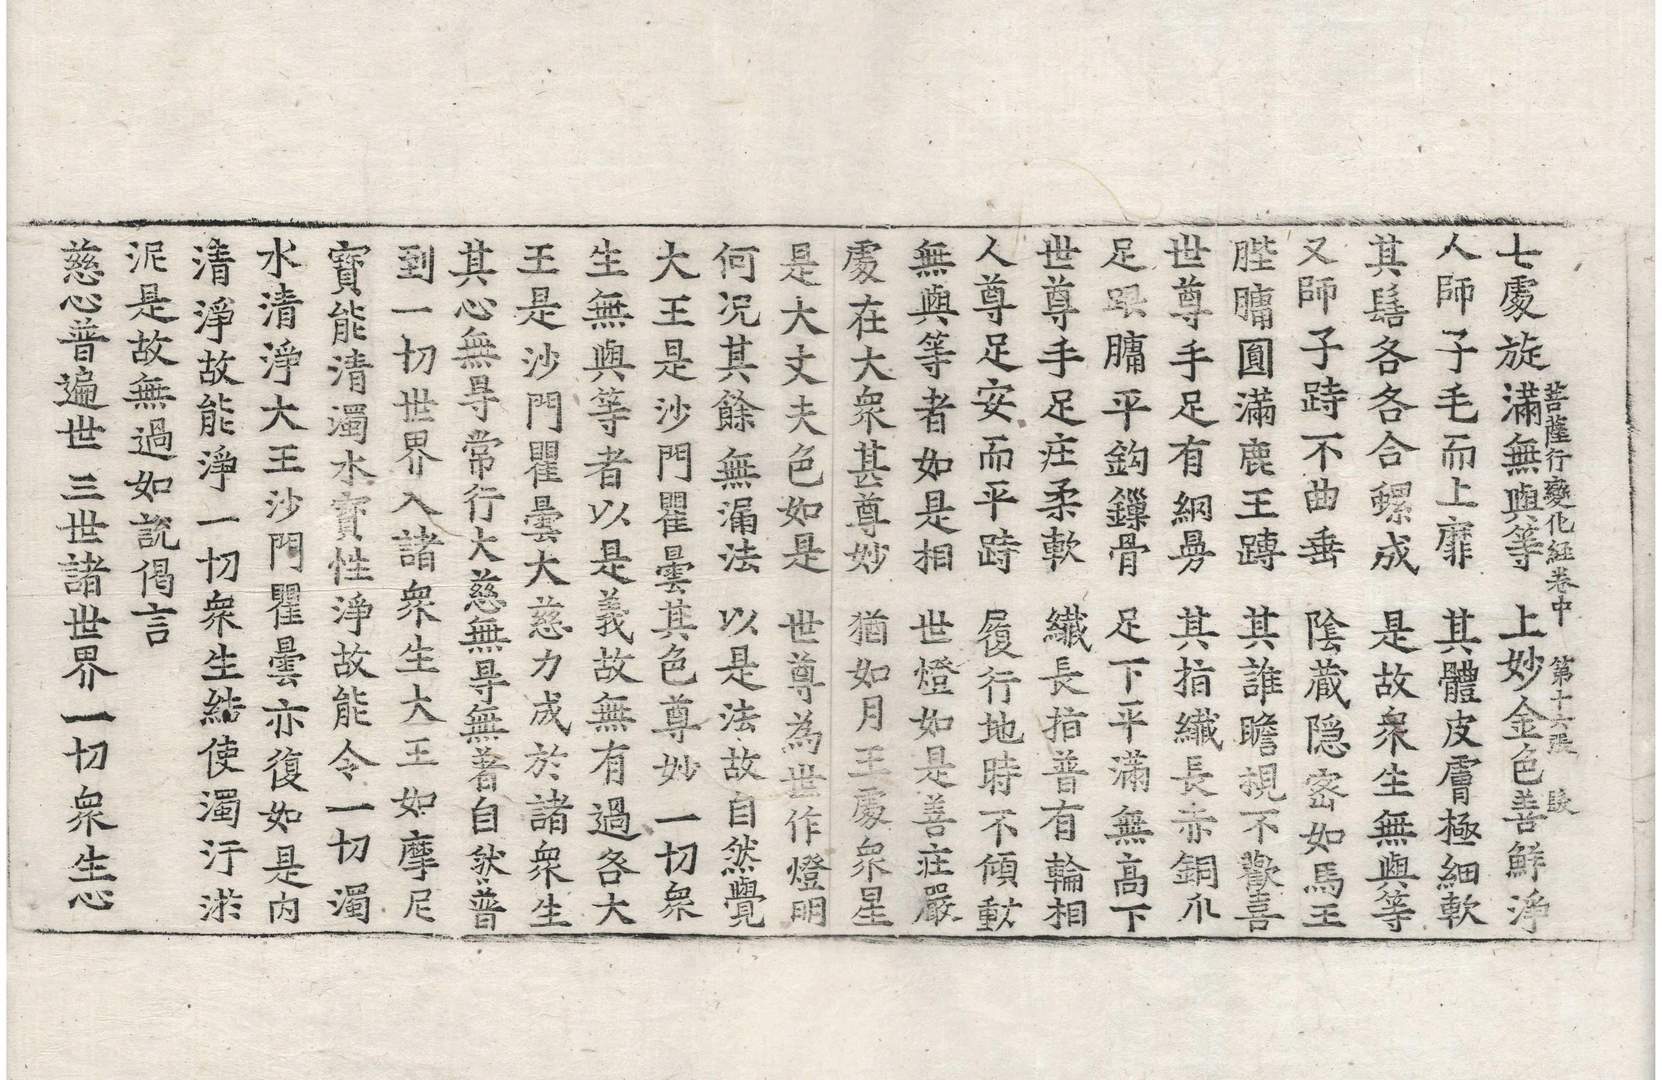 菩薩行變化經卷中　第十六張　㱥
七處旋滿無與等　上妙金色善鮮淨
人師子毛而上靡　其體皮膚極細軟
其髻各各合螺成　是故衆生無與等
又師子跱不曲垂　陰蔵隐密如馬王
䏶𦟛圓滿鹿王蹲　其誰瞻視不歡喜
世尊手足有網縵　其指纎長赤銅爪
足趺𦟛平鈎鏁骨　足下平滿無高下
世尊手足庄柔軟　纎長指普有輪相
人尊足安而平跱　履行地時不傾動
無與等者如是相　世燈如是善庄嚴
處在大衆甚尊妙　猶如月王處衆星
是大丈夫色如是　世尊為世作燈明
何况其餘無漏法　以是法故自然覺
大王是沙門瞿曇其色尊妙一切衆
生無與等者以是義故無有過各大
王是沙門瞿曇大慈力成於諸衆生
其心無㝵常行大慈無㝵無著自然普
到一切世界入諸衆生大王如摩尼
寶能清濁水寶性淨故能令一切濁
水清淨大王沙門瞿曇亦復如是内
清淨故能淨一切衆生結使濁汙淤
泥是故無過如說偈言
慈心普遍世　三世諸世界　一切衆生心